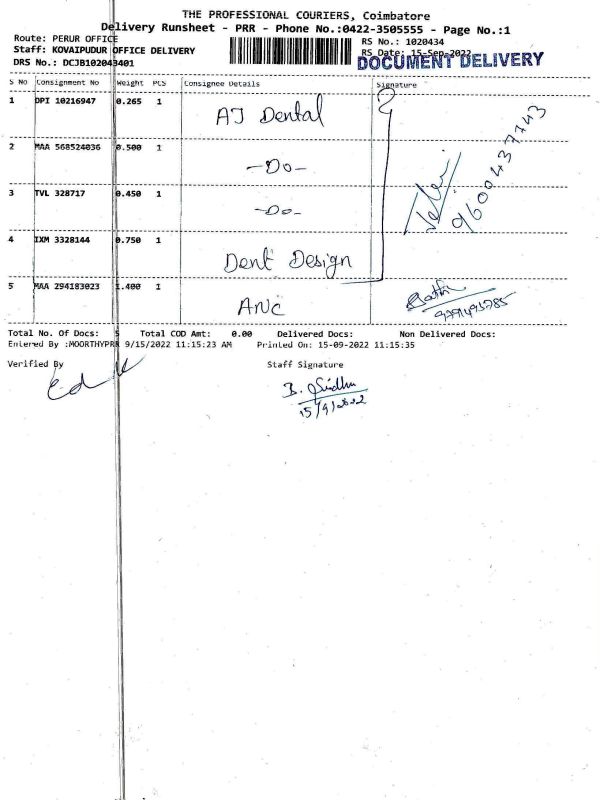 THE PROFESSIONAL COURIERS, Coimbatore
Delivery Runsheet - PRR - Phone No.:0422-3505555 - Page No.:1
Route: PERUR OFFICE
RS No.: 1020434
Staff: KOVAIPUDUR OFFICE DELIVERY
RS Date: 15-Sep-2022
DRS No.: DCJB102043401
DOCUMENT DELIVERY
S No Consignment No Weight PCS Consignee Details Signature
1 DPI 10216947 0.265 1 AJ Dental
2 MAA 568524036 0.500 1 -Do-
3 TVL 328717 0.450 1 -Do-
9600437743
4 IXM 3328144 0.750 1 Dent Design
5 MAA 294183023 1.400 1 ANC
9791495785
Total No. Of Docs: 5 Total COD Amt: 0.00 Delivered Docs: Non Delivered Docs:
Entered By :MOORTHYPRR 9/15/2022 11:15:23 AM Printed On: 15-09-2022 11:15:35
Verified By Staff Signature
15/9/2022